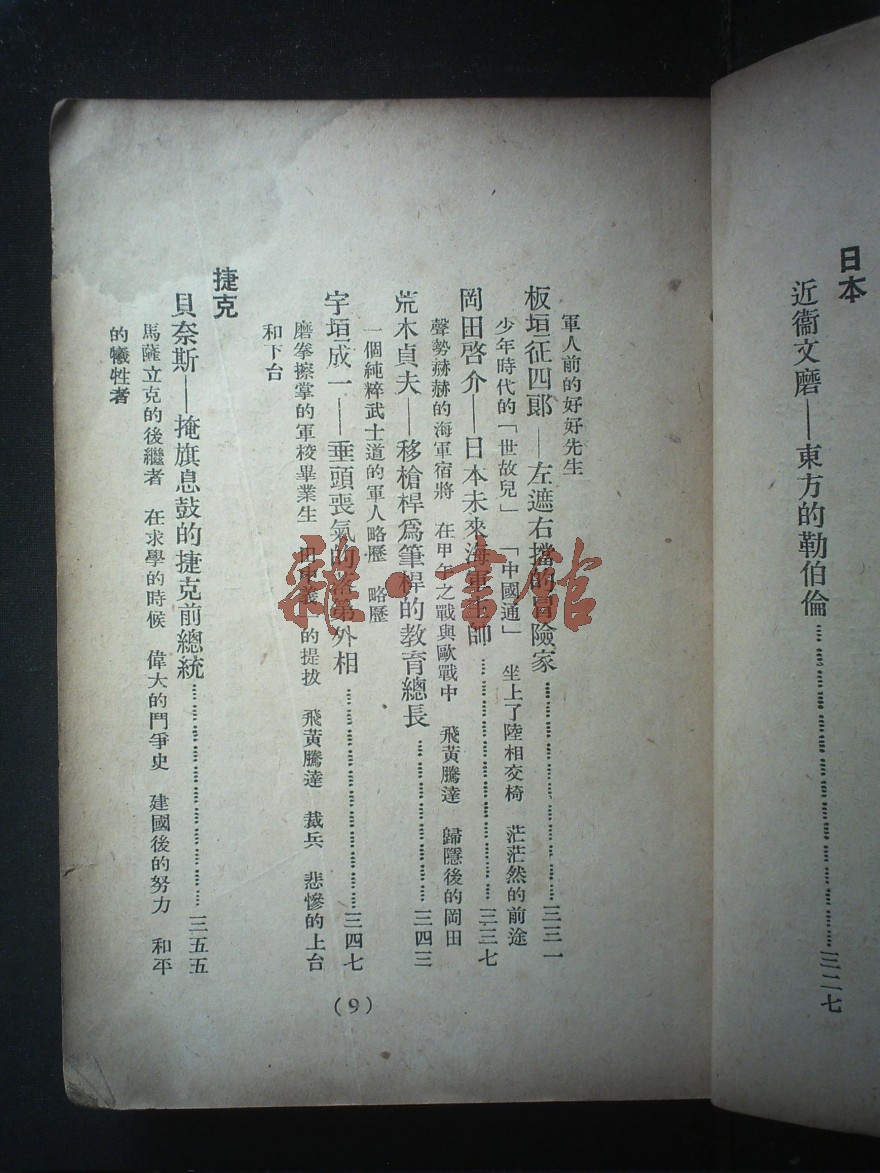 日本
近衞文磨——東方的勒伯倫…………三二七
軍人前的好好先生
板垣征四郞——左遮右擋的冒險家…………三三一
少年時代的「世故兒」 「中國通」 坐上了陸相交椅 茫茫然的前途
岡田啓介——日本未來海軍主師…………三三七
聲勢赫赫的海軍宿將 在甲午之戰與歐戰中 飛黃騰達 歸隱後的岡田
荒木貞夫——移槍桿爲筆桿的教育總長…………三四三
一個純粹武士道的軍人略歷 略歷
宇垣成一——垂頭喪氣的落第外相…………三四七
磨拳擦掌的軍校畢業生 田中義一的提拔 飛黃騰達 裁兵 悲慘的上台
和下台
捷克
貝奈斯——掩旗息鼓的捷克前總統…………三五五
馬薩立克的後繼者 在求學的時候 偉大的鬥爭史 建國後的努力 和平
的犧牲者
(9)
雜·書館